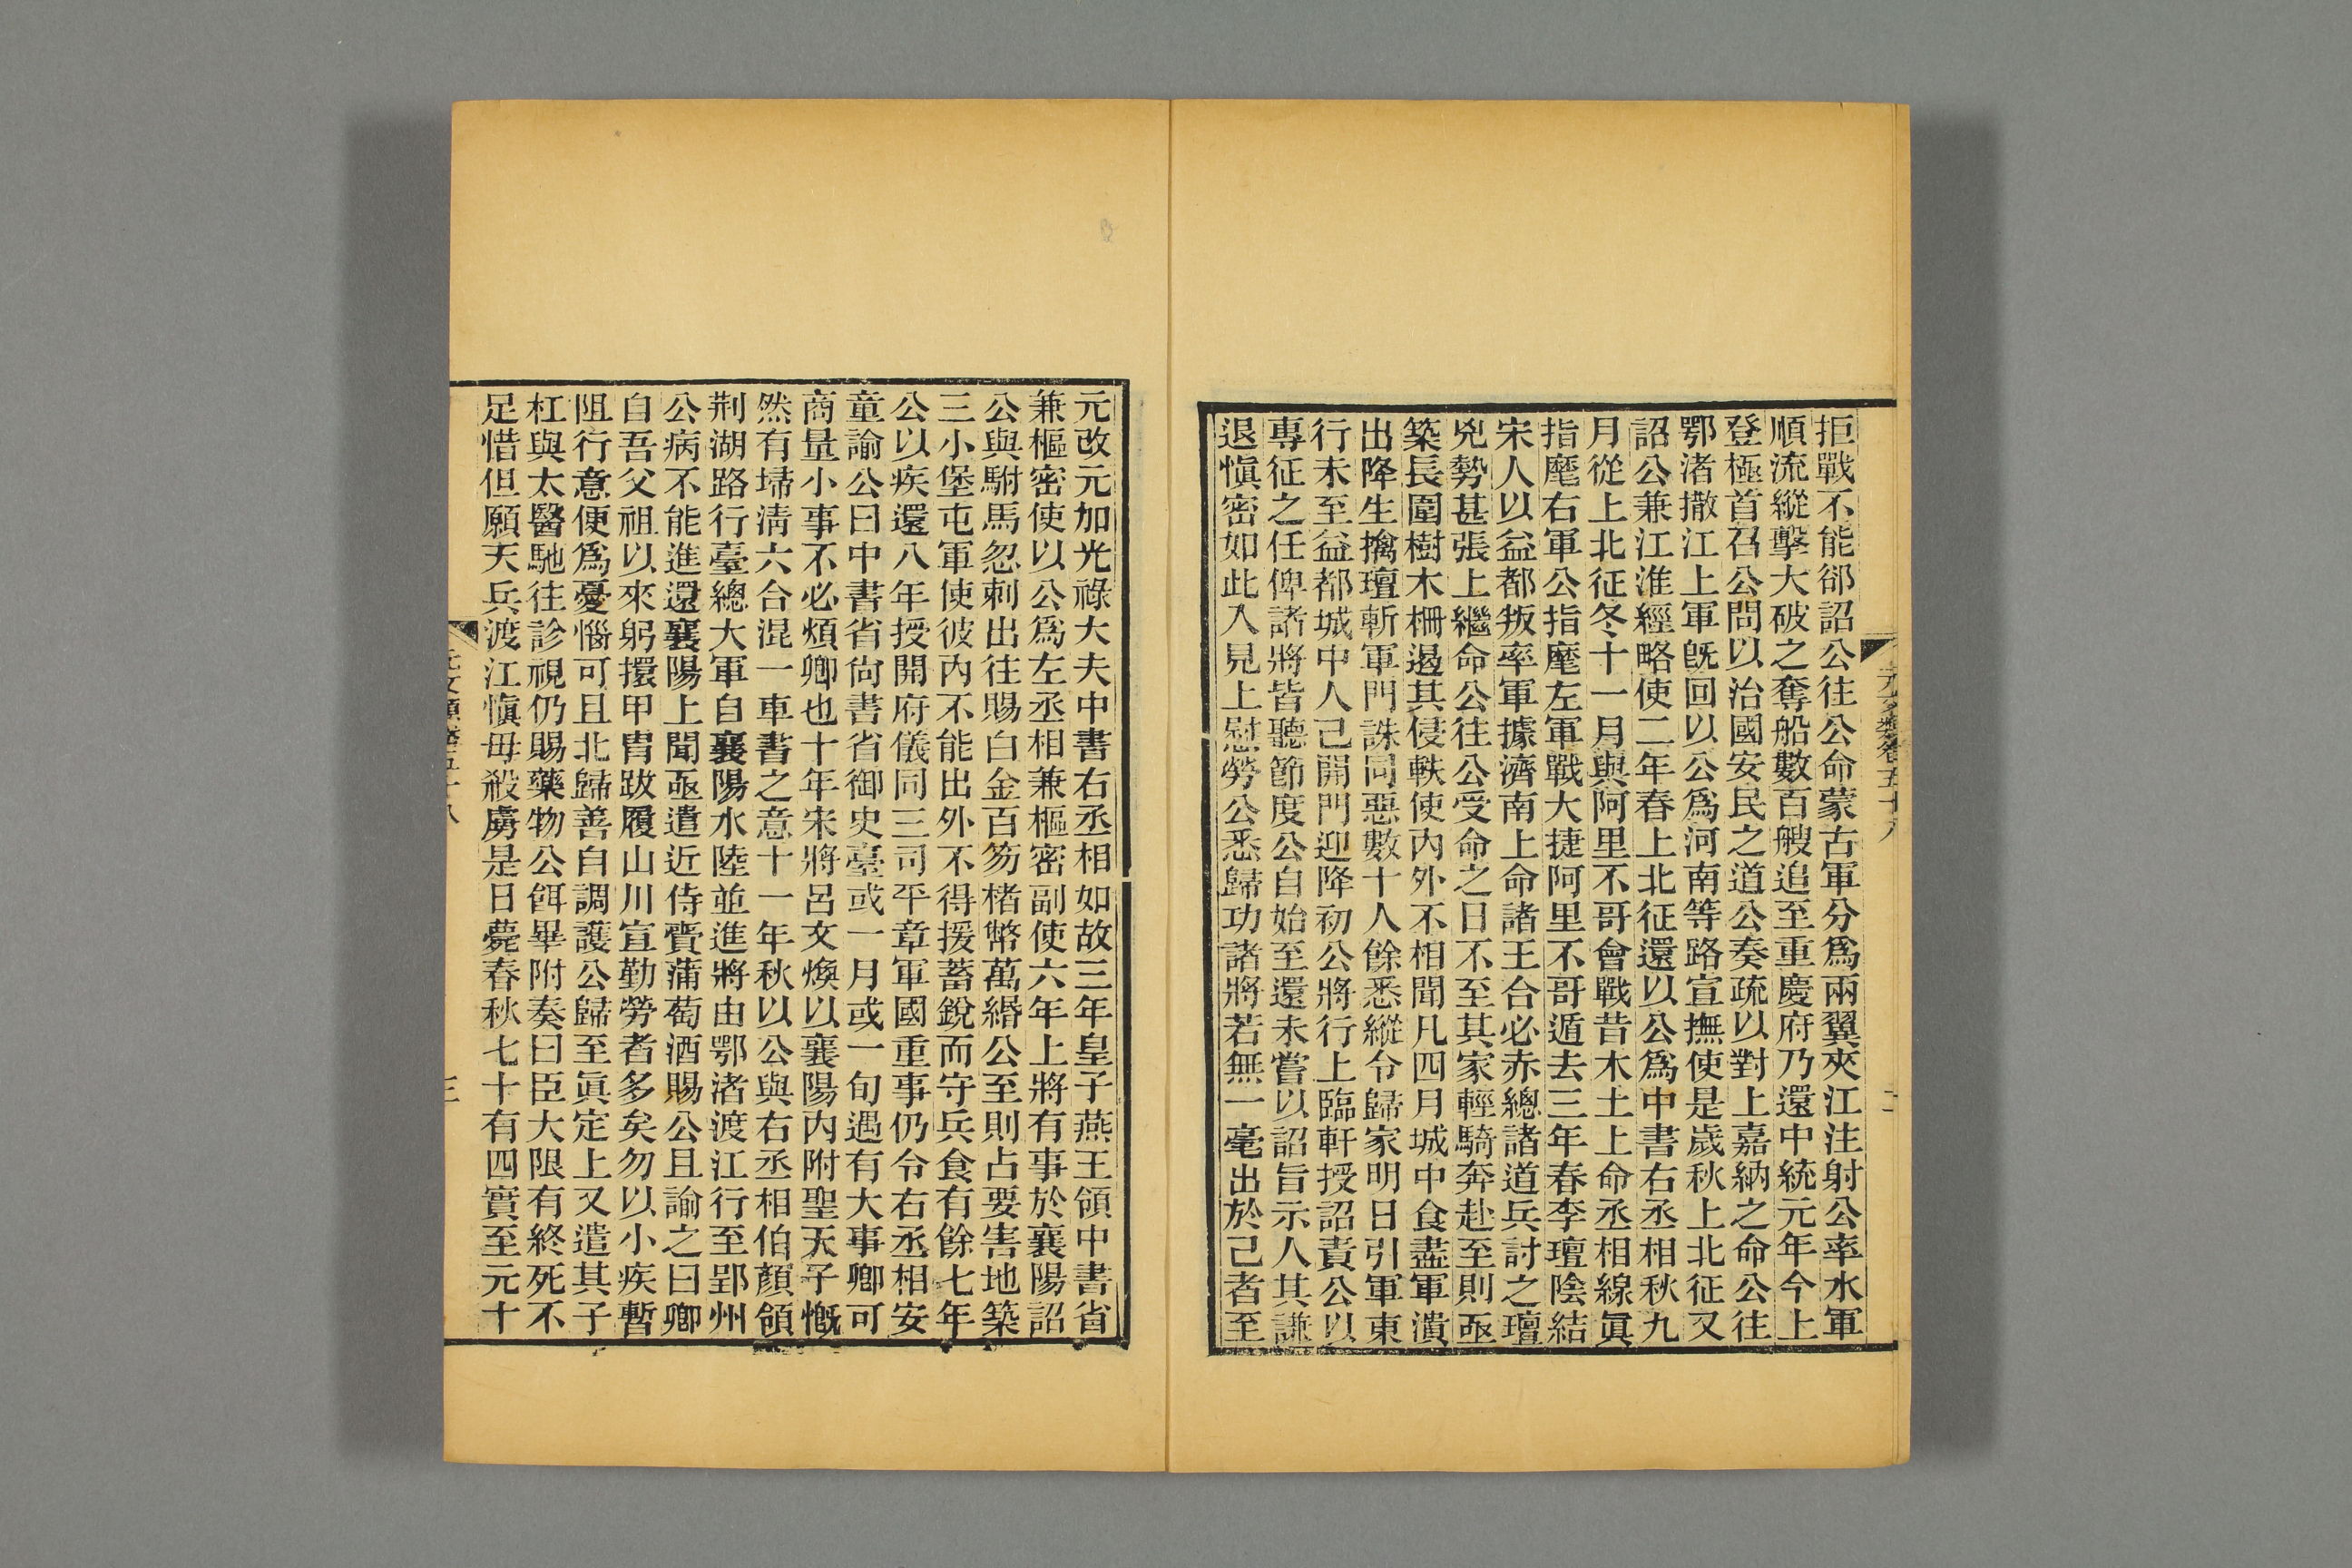 拒戰不能郤詔公往公命蒙古軍分爲兩翼夾江注射公率水軍
順流縱擊大破之奪船數百艘追至重慶府乃還中統元年今上
登極首召公問以治國安民之道公奏疏以對上嘉納之命公往
鄂渚撒江上軍旣回以公爲河南等路宣撫使是歲秋上北征又
詔公兼江淮經略使二年春上北征還以公爲中書右丞相秋九
月從上北征冬十一月與阿里不哥會戰昔木土上命丞相線眞
指麾右軍公指麾左軍戰大捷阿里不哥遁去三年春李璮陰結
宋人以益都叛率軍據濟南上命諸王合必赤總諸道兵討之璮
兇勢甚張上繼命公往公受命之日不至其家輕騎奔赴至則亟
築長圍樹木柵遏其侵軼使內外不相聞凡四月城中食盡軍潰
出降生擒璮斬軍門誅同惡數十人餘悉縱令歸家明日引軍東
行未至益都城中人己開門迎降初公將行上臨軒授詔責公以
專征之任俾諸將皆聽節度公自始至還未嘗以詔旨示人其謙
退愼密如此入見上慰勞公悉歸功諸將若無一毫出於己者至
元文類卷五十八 二
元改元加光祿大夫中書右丞相如故三年皇子燕王領中書省
兼樞密使以公爲左丞相兼樞密副使六年上將有事於襄陽詔
公與駙馬忽刺出往賜白金百笏楮幣萬緡公至則占要害地築
三小堡屯軍使彼內不能出外不得援蓄銳而守兵食有餘七年
公以疾還八年授開府儀同三司平章軍國重事仍令右丞相安
童諭公曰中書省尙書省御史臺或一月或一旬遇有大事卿可
商量小事不必煩卿也十年宋將呂文煥以襄陽內附聖天子慨
然有埽淸六合混一車書之意十一年秋以公與右丞相伯顏領
荆湖路行臺總大軍自襄陽水陸並進將由鄂渚渡江行至郢州
公病不能進還襄陽上聞亟遣近侍賫蒲萄酒賜公且諭之曰卿
自吾父祖以來躬擐甲冑跋履山川宣勤勞者多矣勿以小疾暫
阻行意便爲憂惱可且北歸善自調護公歸至眞定上又遣其子
杠與太醫馳往診視仍賜藥物公餌畢附奏曰臣大限有終死不
足惜但願天兵渡江愼毋殺虜是日薨春秋七十有四實至元十
元文類卷五十八 三